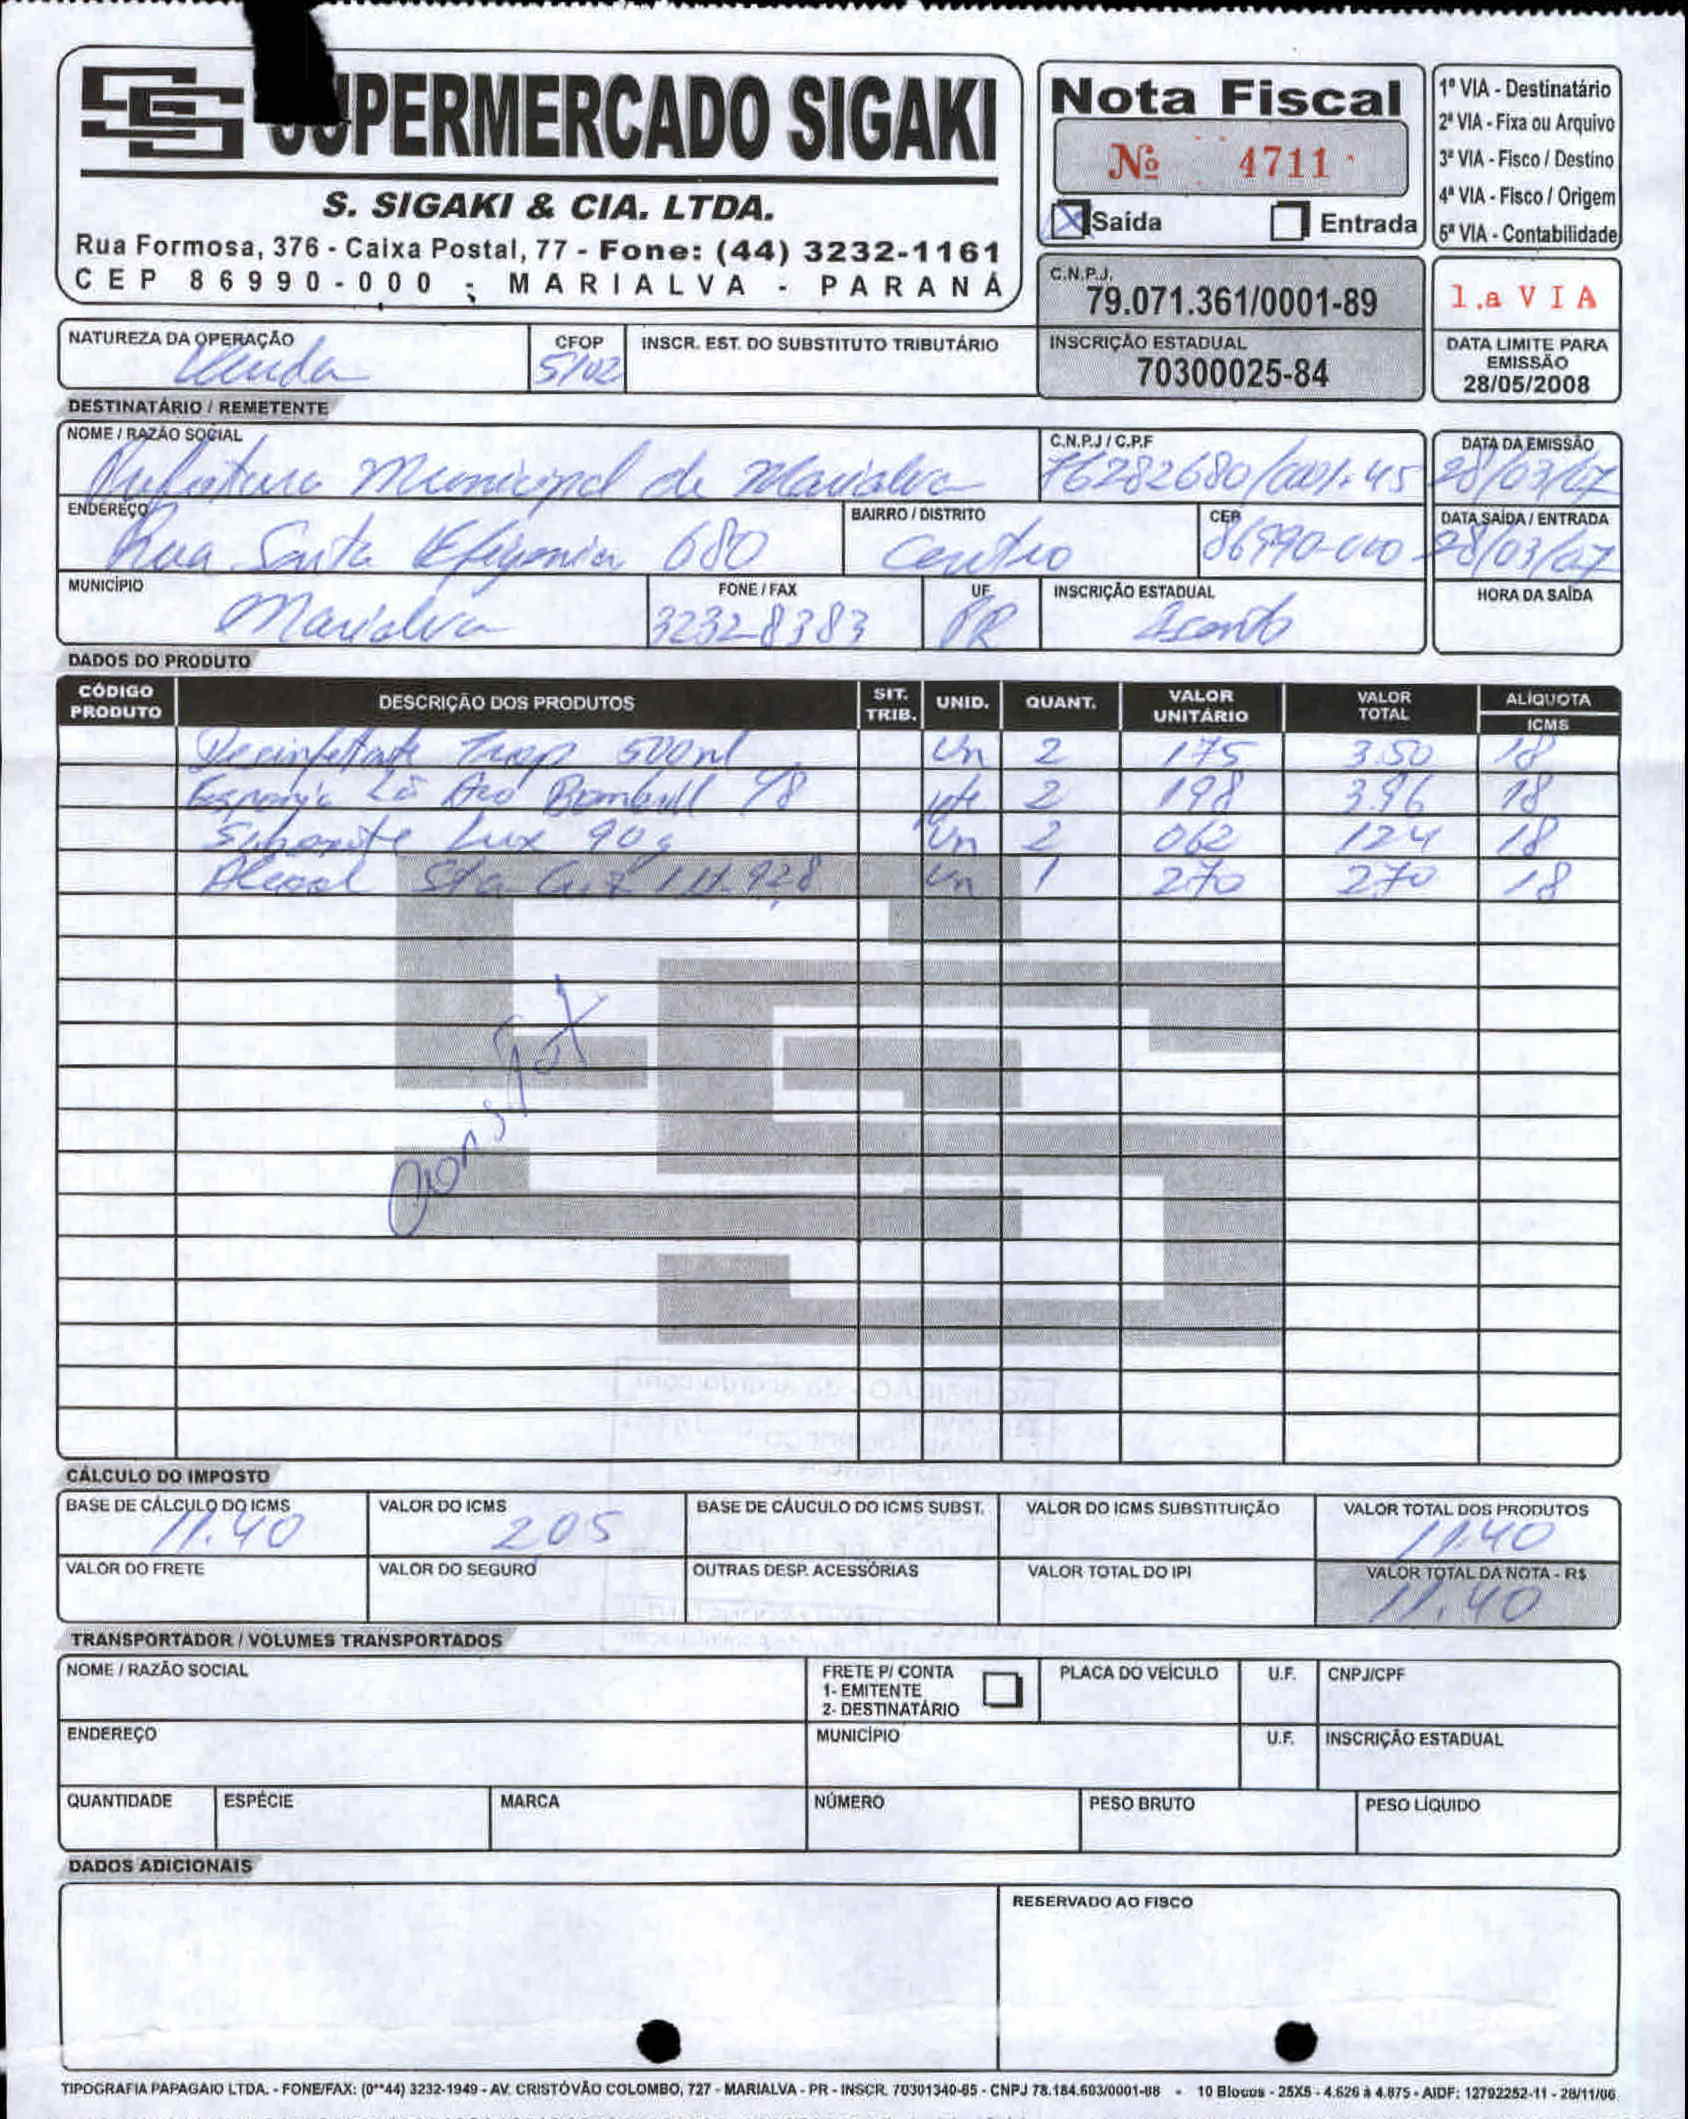 SUPERMERCADO SIGAKI
S. SIGAKI & CIA. LTDA.
Rua Formosa, 376 - Caixa Postal, 77 - Fone: (44) 3232-1161
CEP 86990-000 - MARIALVA - PARANÁ
Nota Fiscal
Nº 4711
X Saída Entrada
1ª VIA - Destinatário
2ª VIA - Fixa ou Arquivo
3ª VIA - Fisco / Destino
4ª VIA - Fisco / Origem
5ª VIA - Contabilidade
C.N.P.J.
79.071.361/0001-89
1.a VIA
NATUREZA DA OPERAÇÃO
Venda
CFOP
5102
INSCR. EST. DO SUBSTITUTO TRIBUTÁRIO
INSCRIÇÃO ESTADUAL
70300025-84
DATA LIMITE PARA
EMISSÃO
28/05/2008
DESTINATÁRIO / REMETENTE
NOME / RAZÃO SOCIAL
Prefeitura Municipal de Marialva
C.N.P.J / C.P.F
76282680/0001-45
DATA DA EMISSÃO
28/03/07
ENDEREÇO
Rua Santa Efigenia 680
BAIRRO / DISTRITO
Centro
CEP
86990-000
DATA SAÍDA / ENTRADA
28/03/07
MUNICÍPIO
Marialva
FONE / FAX
3232-8383
UF
PR
INSCRIÇÃO ESTADUAL
Isento
HORA DA SAÍDA
DADOS DO PRODUTO
CÓDIGO PRODUTO DESCRIÇÃO DOS PRODUTOS SIT. TRIB. UNID. QUANT. VALOR UNITÁRIO VALOR TOTAL ALÍQUOTA ICMS
Desinfetante Trop 500ml Un 2 175 3.50 18
Esponja Lã Aço Bombril pte 2 198 3.96 18
Sabonete Lux 90g Un 2 062 124 18
Alcool Sta Cruz 1 Lt 92,8 Un 1 270 270 18
CÁLCULO DO IMPOSTO
BASE DE CÁLCULO DO ICMS
11.40
VALOR DO ICMS
2,05
BASE DE CÁUCULO DO ICMS SUBST.
VALOR DO ICMS SUBSTITUIÇÃO
VALOR TOTAL DOS PRODUTOS
11.40
VALOR DO FRETE
VALOR DO SEGURO
OUTRAS DESP. ACESSÓRIAS
VALOR TOTAL DO IPI
VALOR TOTAL DA NOTA - R$
11.40
TRANSPORTADOR / VOLUMES TRANSPORTADOS
NOME / RAZÃO SOCIAL
FRETE P/ CONTA
1- EMITENTE
2- DESTINATÁRIO
PLACA DO VEÍCULO
U.F.
CNPJ/CPF
ENDEREÇO
MUNICÍPIO
U.F.
INSCRIÇÃO ESTADUAL
QUANTIDADE
ESPÉCIE
MARCA
NÚMERO
PESO BRUTO
PESO LÍQUIDO
DADOS ADICIONAIS
RESERVADO AO FISCO
TIPOGRAFIA PAPAGAIO LTDA. - FONE/FAX: (0**44) 3232-1949 - AV. CRISTÓVÃO COLOMBO, 727 - MARIALVA - PR - INSCR. 70301340-65 - CNPJ 78.184.603/0001-88 - 10 Blocos - 25X5 - 4.626 à 4.875 - AIDF: 12792252-11 - 28/11/06